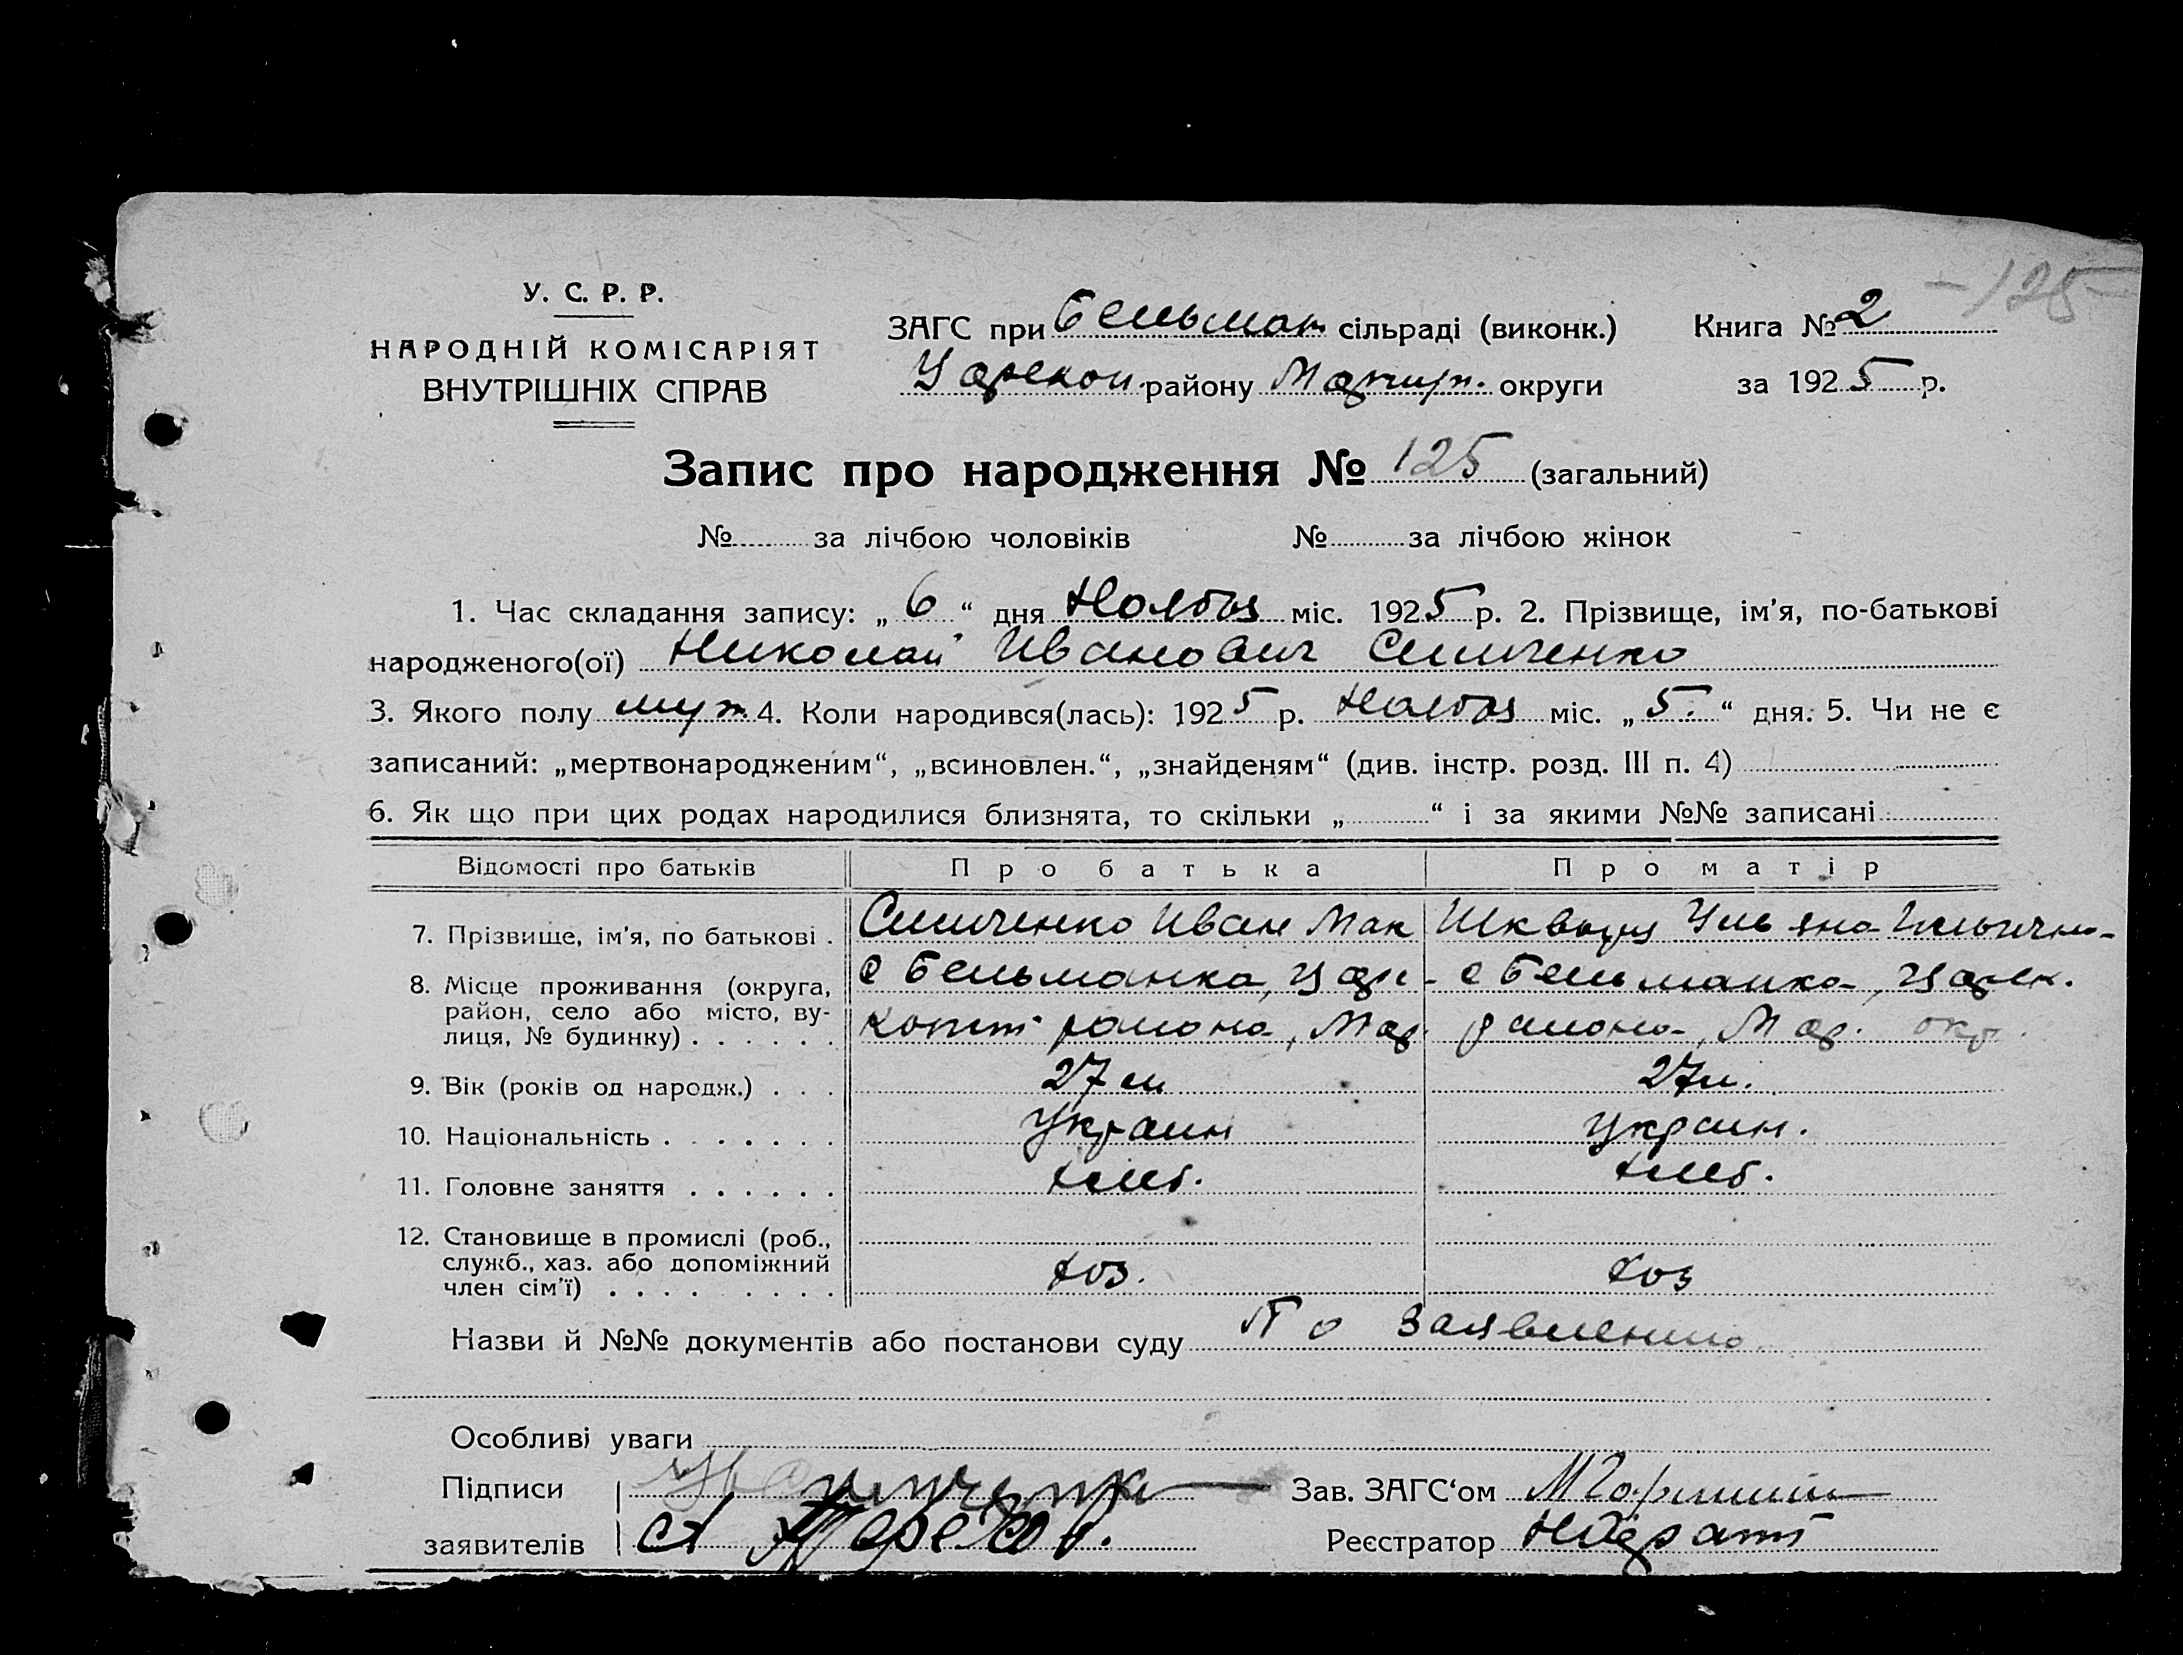 -125-
У. С. Р. Р.
НАРОДНІЙ КОМІСАРІЯТ
ВНУТРІШНІХ СПРАВ
ЗАГС при Бельман сільраді (виконк.) Книга № 2
Царекон. району Мариуп. округи за 1925 р.
Запис про народження № 125 (загальний)
№ за лічбою чоловіків № за лічбою жінок
1. Час складання запису: „6“ дня Ноября міс. 1925 р. 2. Прізвище, ім'я, по-батькові
народженого(ої) Николай Иванович Симченко
3. Якого полу муж 4. Коли народився(лась): 1925 р. Ноября міс. „5.“ дня. 5. Чи не є
записаний: „мертвонародженим“, „всиновлен.“, „знайденям“ (див. інстр. розд. III п. 4)
6. Як що при цих родах народилися близнята, то скільки „ “ і за якими №№ записані
Відомості про батьків Про батька Про матір
7. Прізвище, ім'я, по батькові . Симченко Иван Мак Ульяна Ильична
8. Місце проживання (округа, район, село або місто, вулиця, № будинку) . . . . . . с Бельманка, Цар- с Бельманка, Царек.
района, Мар. района, Мар. окр.
9. Вік (років од народж.) . . . 27 л 27 л.
10. Національність . . . . . . . Украин Украин.
11. Головне заняття . . . . . . хлеб. хлеб.
12. Становище в промислі (роб., служб., хаз. або допоміжний член сім'ї) . . . . . . . . . хоз. хоз
Назви й №№ документів або постанови суду По заявлению
Особливі уваги
Підписи Зав. ЗАГС‘ом
заявителів Реєстратор